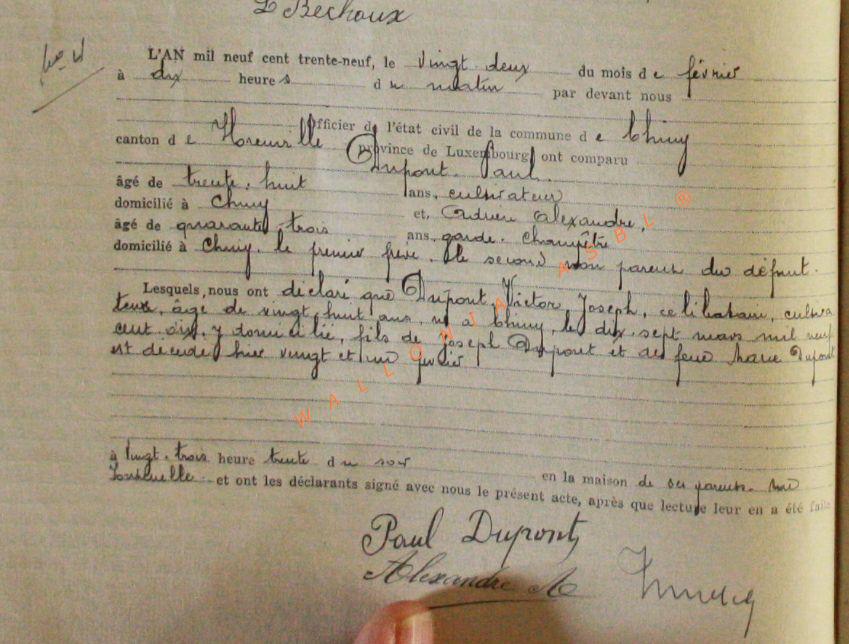 L Bechoux
L'AN mil neuf cent trente-neuf, le vingt deux du mois d e février
à dix heure s d u matin par devant nous
Officier de l'état civil de la commune d e Chiny
canton d e Florenville Province de Luxembourg ont comparu
Dupont. Paul.
âgé de trente. huit ans, cultivateur
domicilié à Chiny et, Adrien Alexandre,
âgé de quarante. trois ans, garde. champêtre
domicilié à Chiny, le premier frère. le second non parent du défunt.
Lesquels nous ont déclaré que Dupont, Victor, Joseph, célibataire, cultiva
teur, âgé de vingt huit ans, né à Chiny, le dix. sept mars mil neuf
cent dix, y domicilié, fils de Joseph Dupont et de feue Marie Dupont
est décédé hier vingt et un février
à vingt. trois heure trente d u soir en la maison de ses parents. rue
et ont les déclarants signé avec nous le présent acte, après que lecture leur en a été faite
Paul Dupont
Alexandre A
WALLONIA ASBL ®